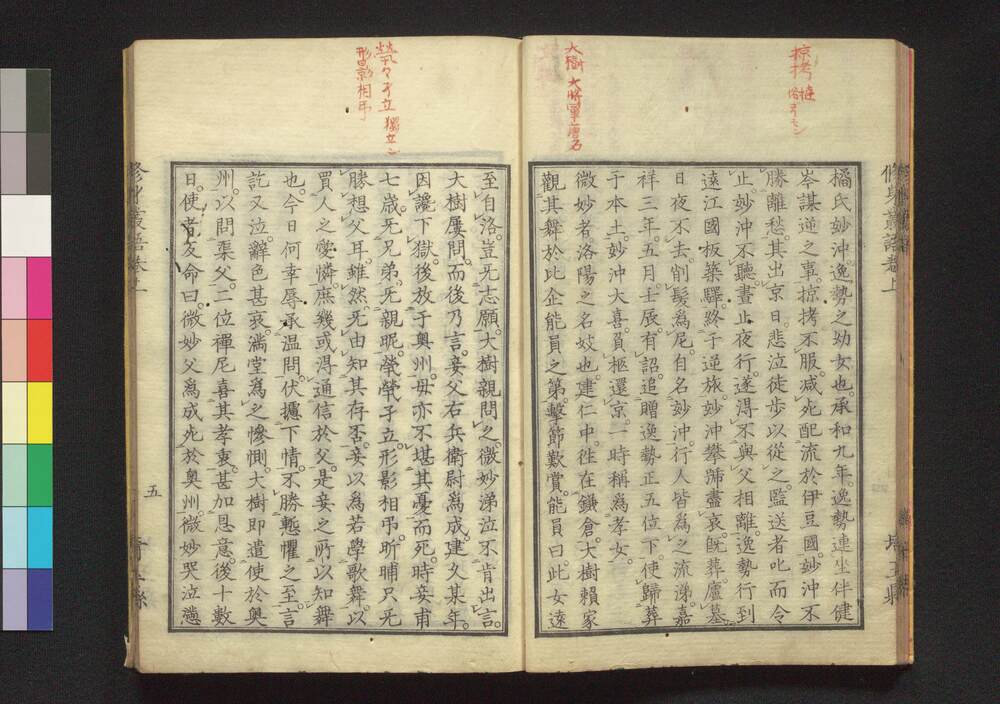 掠拷
大樹 大將軍唐名
橘氏妙沖。逸勢之幼女也。承和九年。逸勢連坐伴健
岑謀逆之事。掠拷不服。减死配流於伊豆國。妙沖不
勝離愁。其出京日。悲泣徒步以從之。監送者叱而令
止。妙沖不聽。晝止夜行。遂得不與父相離。逸勢行到
遠江國板築驛。終于逆旅。妙沖攀號盡哀。既葬。廬墓。
日夜不去。削髮爲尼。自名妙沖。行人皆爲之流涕。嘉
祥三年。五月。壬辰。有詔。追贈逸勢正五位下。使歸葬
于本土。妙沖大喜。負柩還京。一時稱爲孝女。
微妙者。洛陽之名妓也。建仁中。徃在鎌倉。大樹賴家
觀其舞於比企能員之第。擊節歎賞。能員曰。此女遠
煢々孑立 獨立
形影相弔
至自洛。豈無志願。大樹親問之。微妙涕泣不肯出言。
大樹屢問。而後乃言。妾父右兵衛尉爲成。建久某年。
因讒下獄。後放于奧州。母亦不堪其憂而死。時妾甫
七歲。無兄弟。無親昵。煢煢孑立。形影相弔。昕晡只無
勝想父耳。雖然。無由知其存否。妾以爲若學歌舞。以
買人之愛憐。庶幾或得通信於父。是妾之所以知舞
也。今日何幸辱承温問。伏攄下情。不勝慙懼之至。言
訖又泣。辭色甚哀。滿堂爲之慘惻。大樹即遣使於奧
州。以問渠父。二位禪尼喜其孝衷。甚加恩意。後十數
日。使者反命曰。微妙父爲成死於奧州。微妙哭泣懣
五